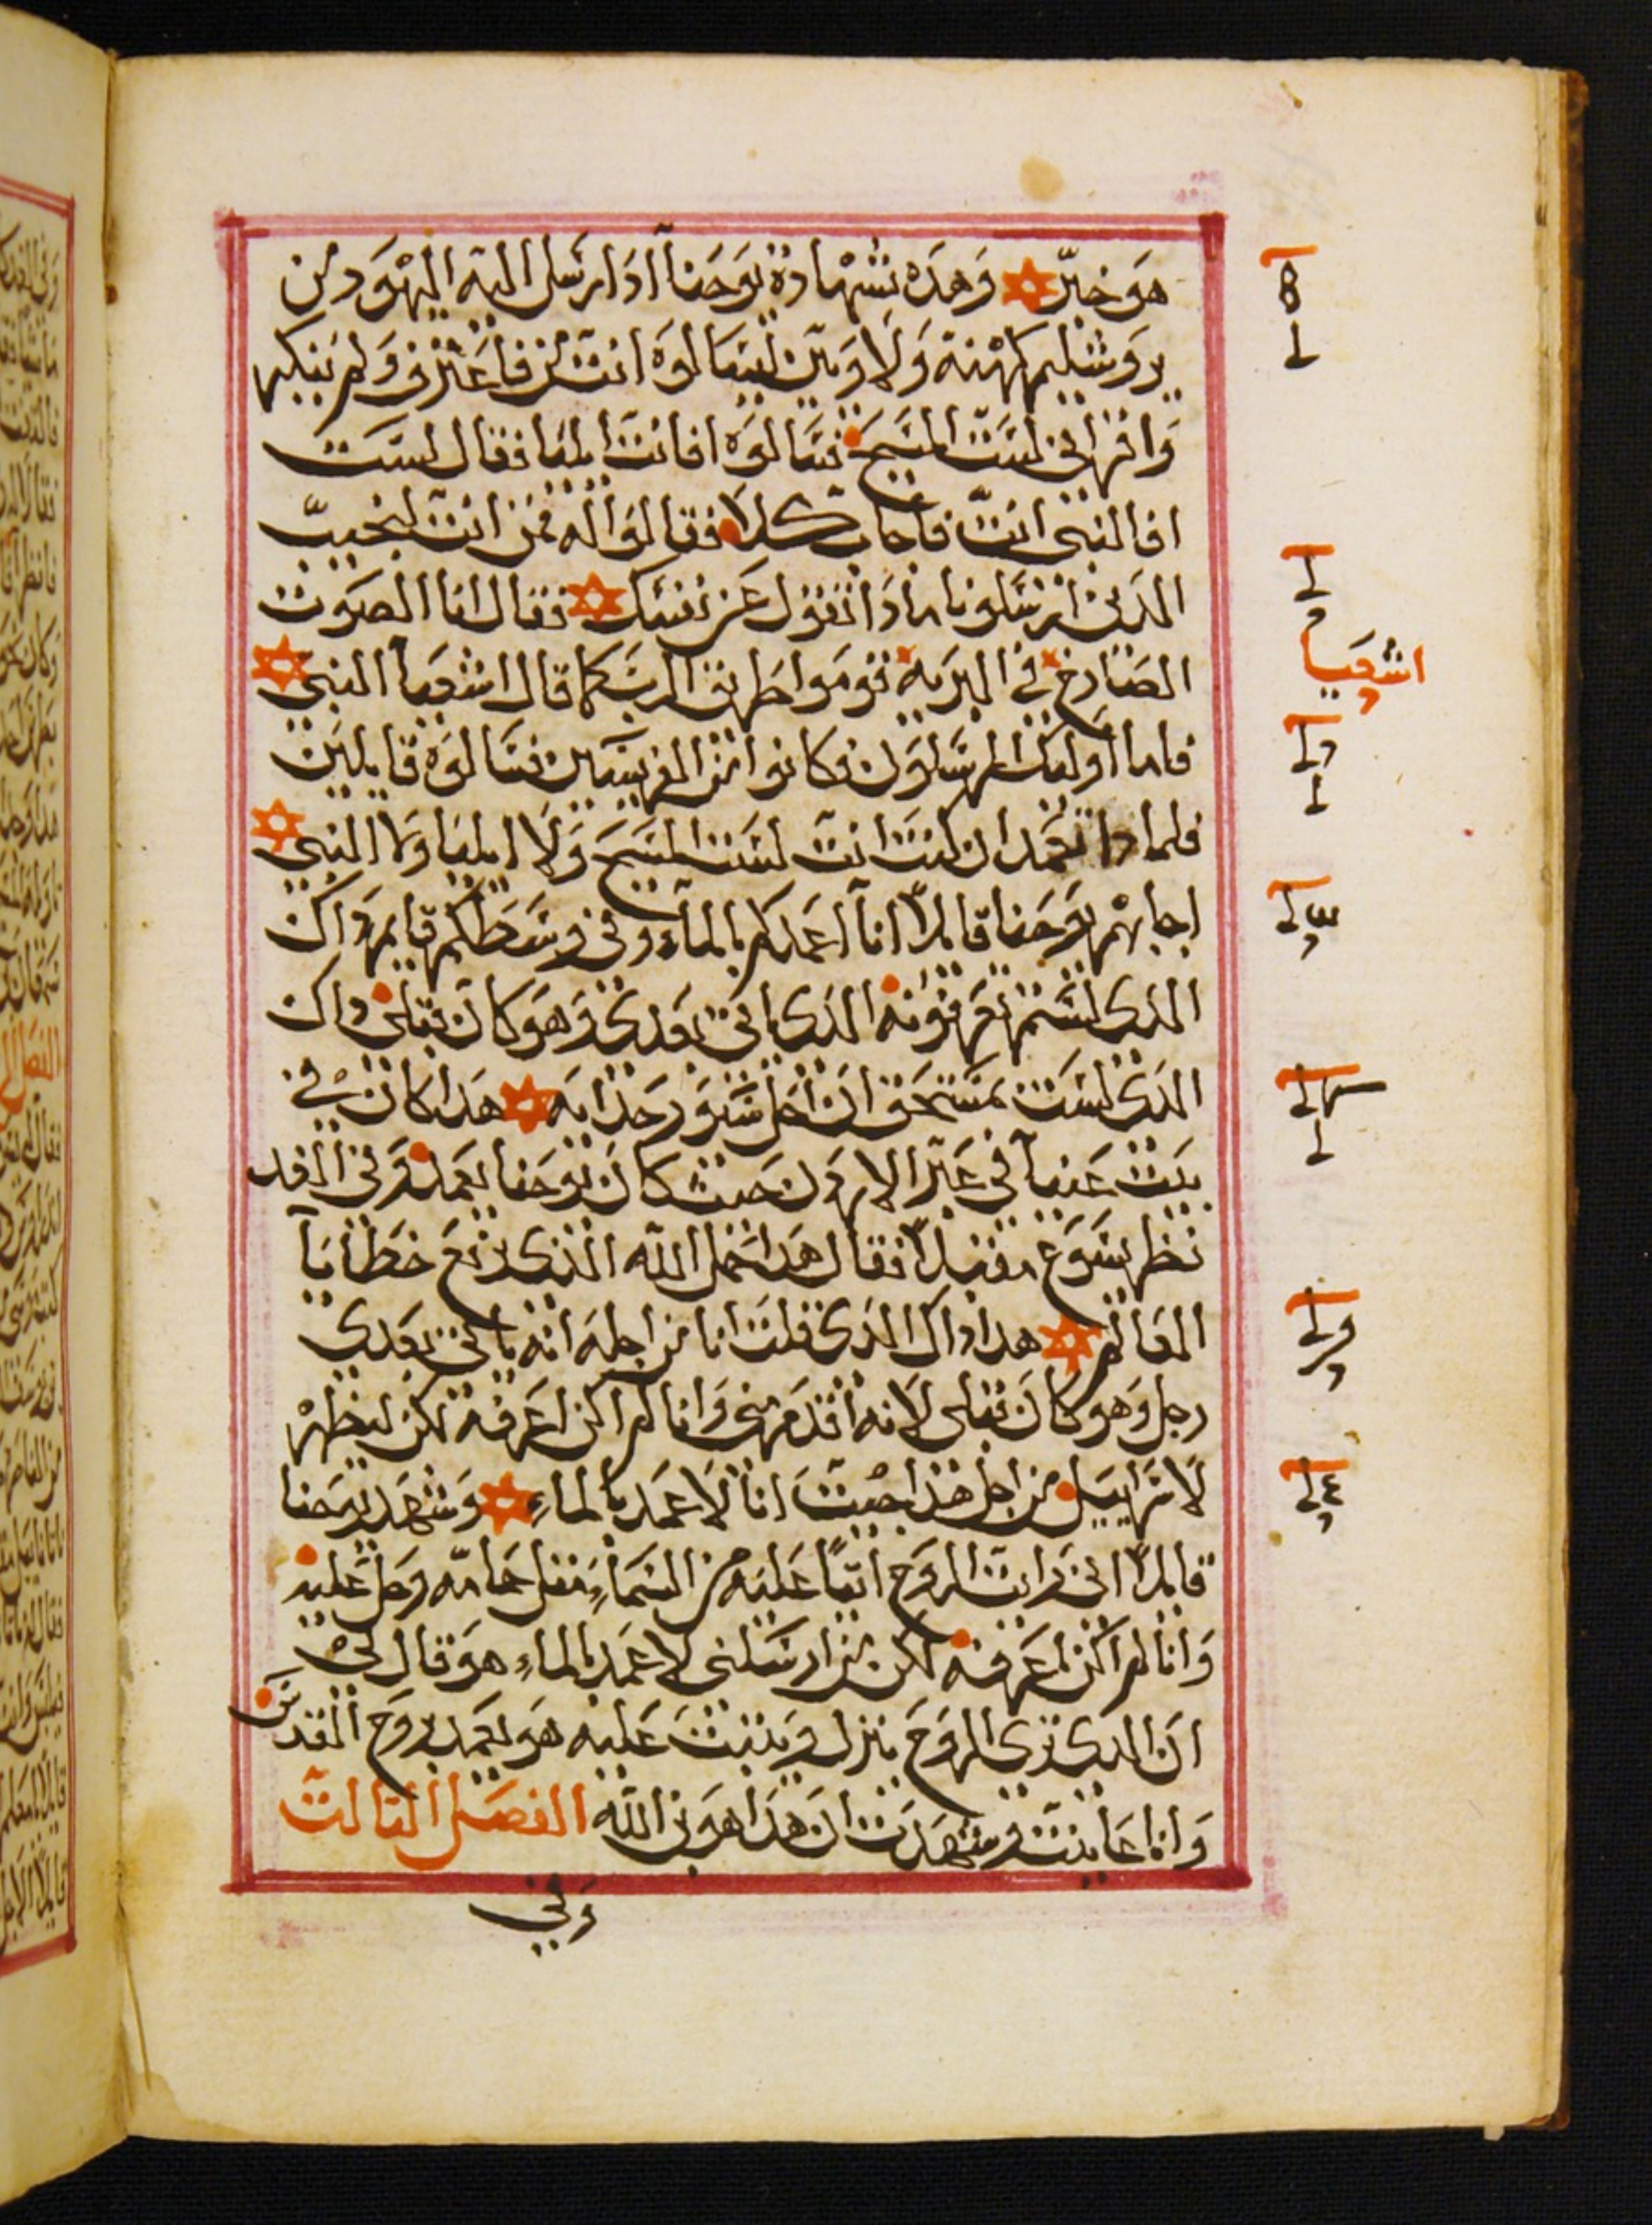 هو خبرّ وهذه شهادة يوحنا اذ ارسل اليه اليهود من
يروشليم كهنة ولاويين ليسالوه انت من فاعترف ولم ينكر
واقر اني لست المسيح فسالوه افانت ايليا فقال لست
افالنبي انت فاجاب كلا فقالوا له فمن انت لنجيب
الذين ارسلونا ماذا تقول عن نفسك فقال انا الصوت
الصارخ في البرية قوموا طريق الرب كما قال اشعيا النبي
فاما اولئك المرسلون فكانوا من الفريسيين فسالوه قايلين
فلماذا تعمد ان كنت انت لست المسيح ولا ايليا ولا النبي
اجابهم يوحنا قايلاً انا اعمدكم بالماء وفي وسطكم قايم داك
الدى لستم تعرفونه الدى ياتي بعدى وهو كان قبلى داك
الدى لست بمستحق ان احل سيور حدايه هدا كان في
بيت عنيا في عبر الاردن حيث كان يوحنا يعمد وفي الغد
نظر يسوع مقبلاً فقال هدا حمل الله الذى يرفع خطايا
العالم هدا داك الدى قلت انا من اجله انه ياتي بعدي
رجل وهو كان قبلى لانه اقدم مني وانا لم اكن اعرفه لكن ليظهر
لاسراييل من اجل هذا جيت انا لاعمد بالماء وشهد يوحنا
قايلاً اني رايت الروح اتيًا عليه من السماء مثل حمامه وحل عليه
وانا لم اكن اعرفه لكن من ارسلني لاعمد بالماء هو قال لي
ان الدى ترى الروح ينزل ويثبت عليه هو يعمد بروح القدس
وانا عاينت وشهدت ان هدا هو بن الله الفصل التالت
وفي
اشعيا